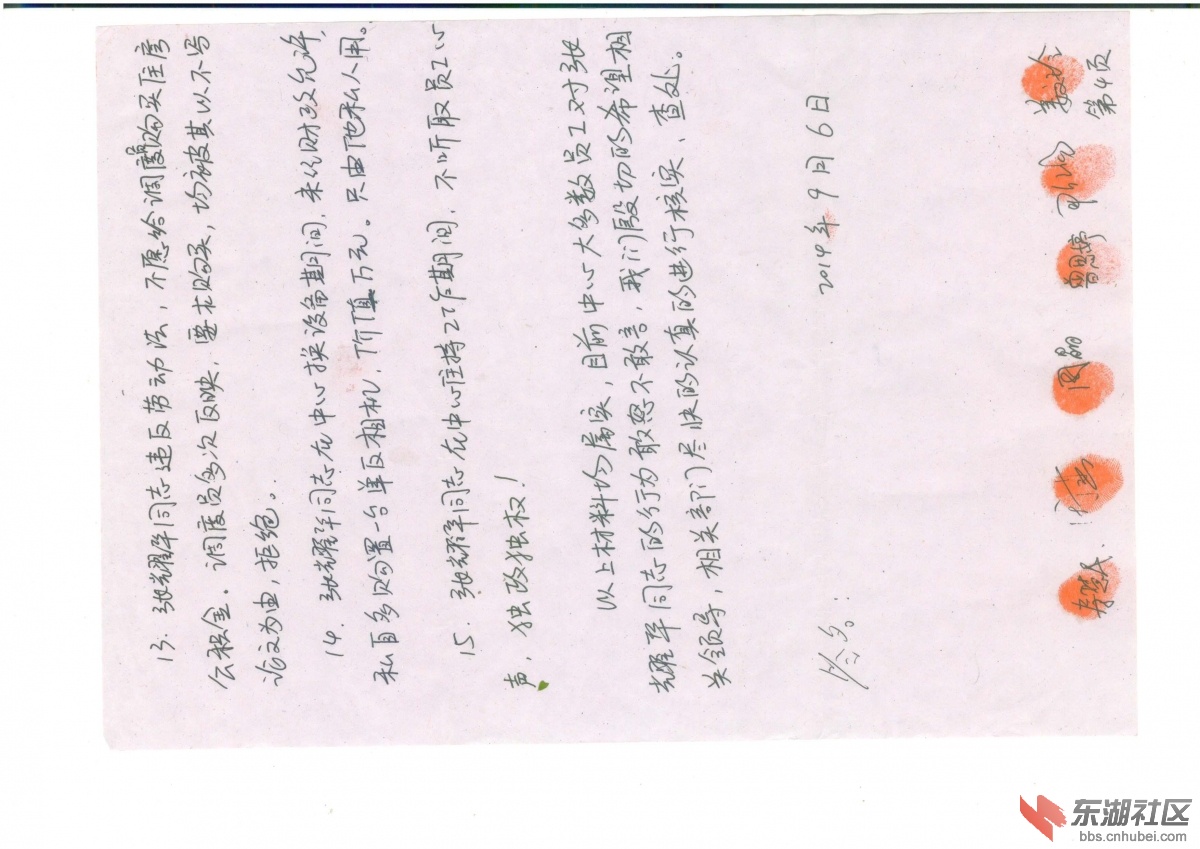 13. 张耀华同志违反劳动法，不愿给调度购买住房
公积金。调度员多次反映，要求购买，均被其以不写
论文为由，拒绝。
14. 张耀华同志在中心换设备期间，未经财政允许，
私自多购置一台单反相机，价值万元。只由他私人用。
15. 张耀华同志在中心主持工作期间，不听取员工心
声，独政独权！
以上材料均属实，目前中心大多数员工对张
耀华同志的行为敢怒不敢言，我们殷切的希望相
关领导，相关部门尽快的认真的进行核实、查处。
签名：
2014年9月6日
周晶
曾思婷
第4页
东湖社区
bbs.cnhubei.com